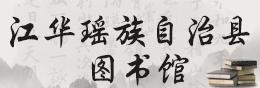 江华瑶族自治县
图书馆